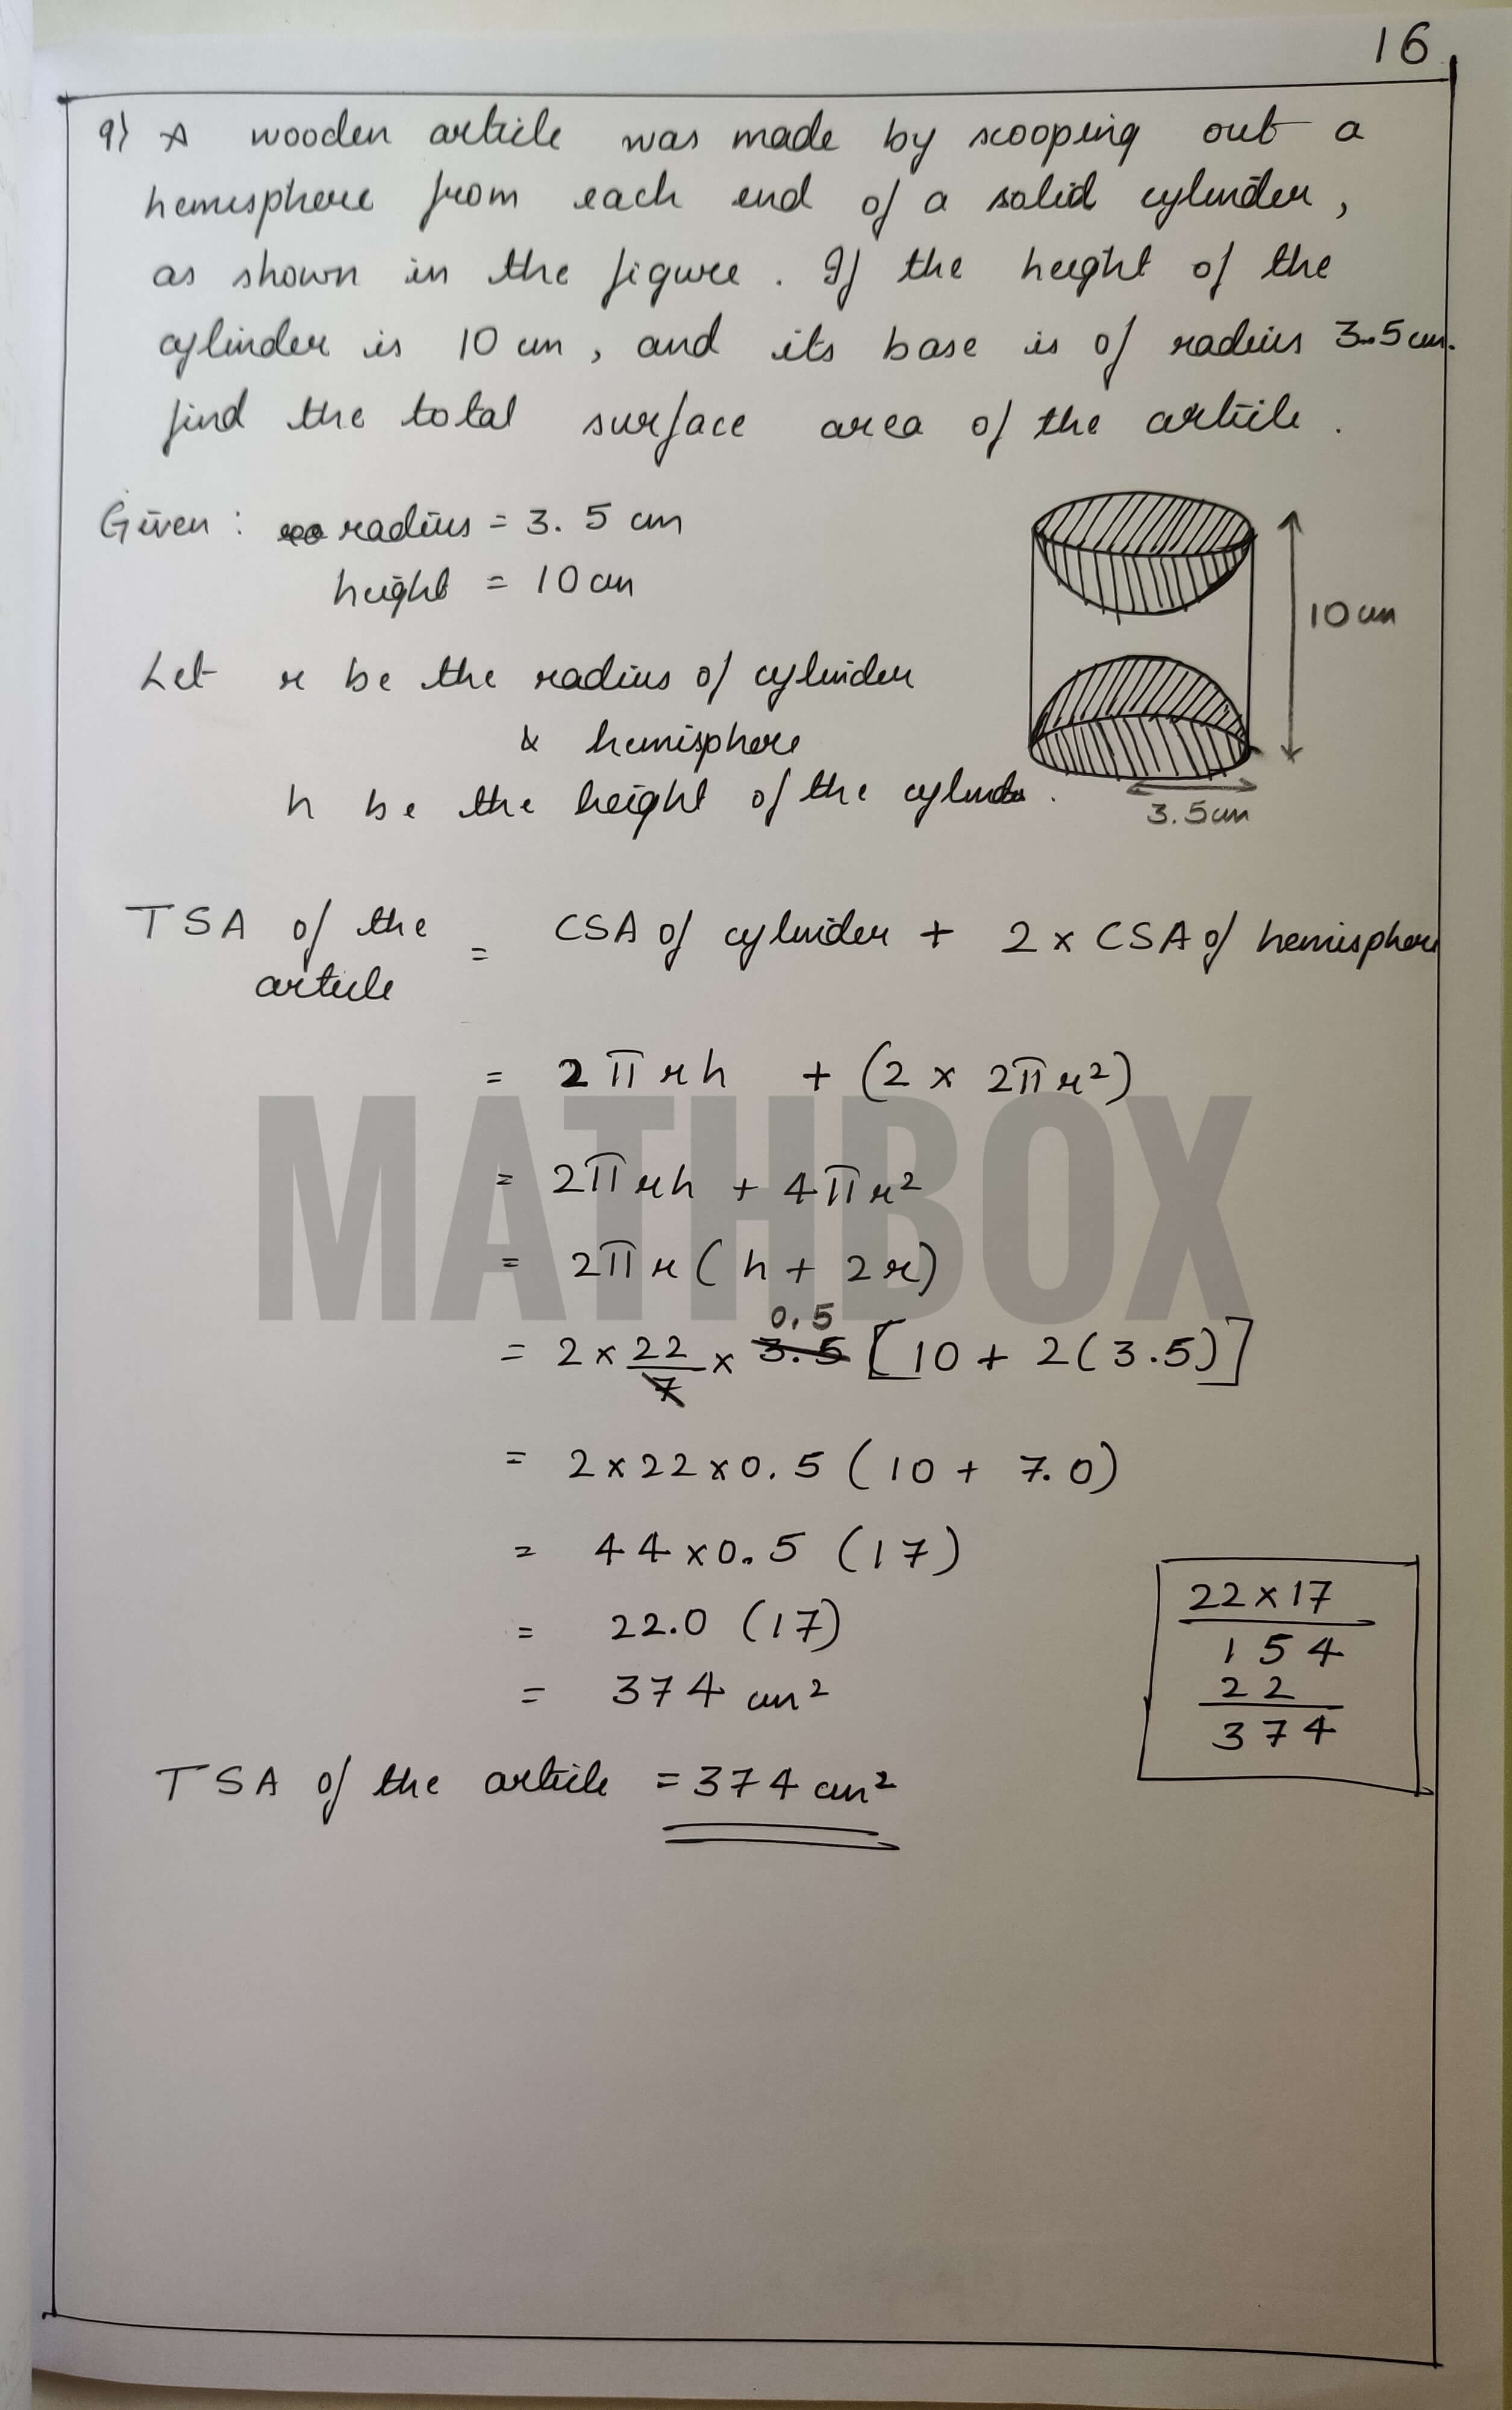 16
9) A wooden article was made by scooping out a
hemisphere from each end of a solid cylinder,
as shown in the figure. If the height of the
cylinder is 10 cm, and its base is of radius 3.5 cm.
find the total surface area of the article.
Given: radius = 3.5 cm
height = 10 cm
10 cm
Let r be the radius of cylinder
& hemisphere
h be the height of the cylinder.
3.5 cm
TSA of the article = CSA of cylinder + 2 × CSA of hemisphere
= 2πrh + (2 × 2πr²)
MATHBOX
= 2πrh + 4πr²
= 2πr(h + 2r)
0.5
= 2 × 22/7 × 3.5 [10 + 2(3.5)]
= 2×22×0.5 (10 + 7.0)
= 44×0.5 (17)
= 22.0 (17)
= 374 cm²
22×17
154
22
374
TSA of the article = 374 cm²